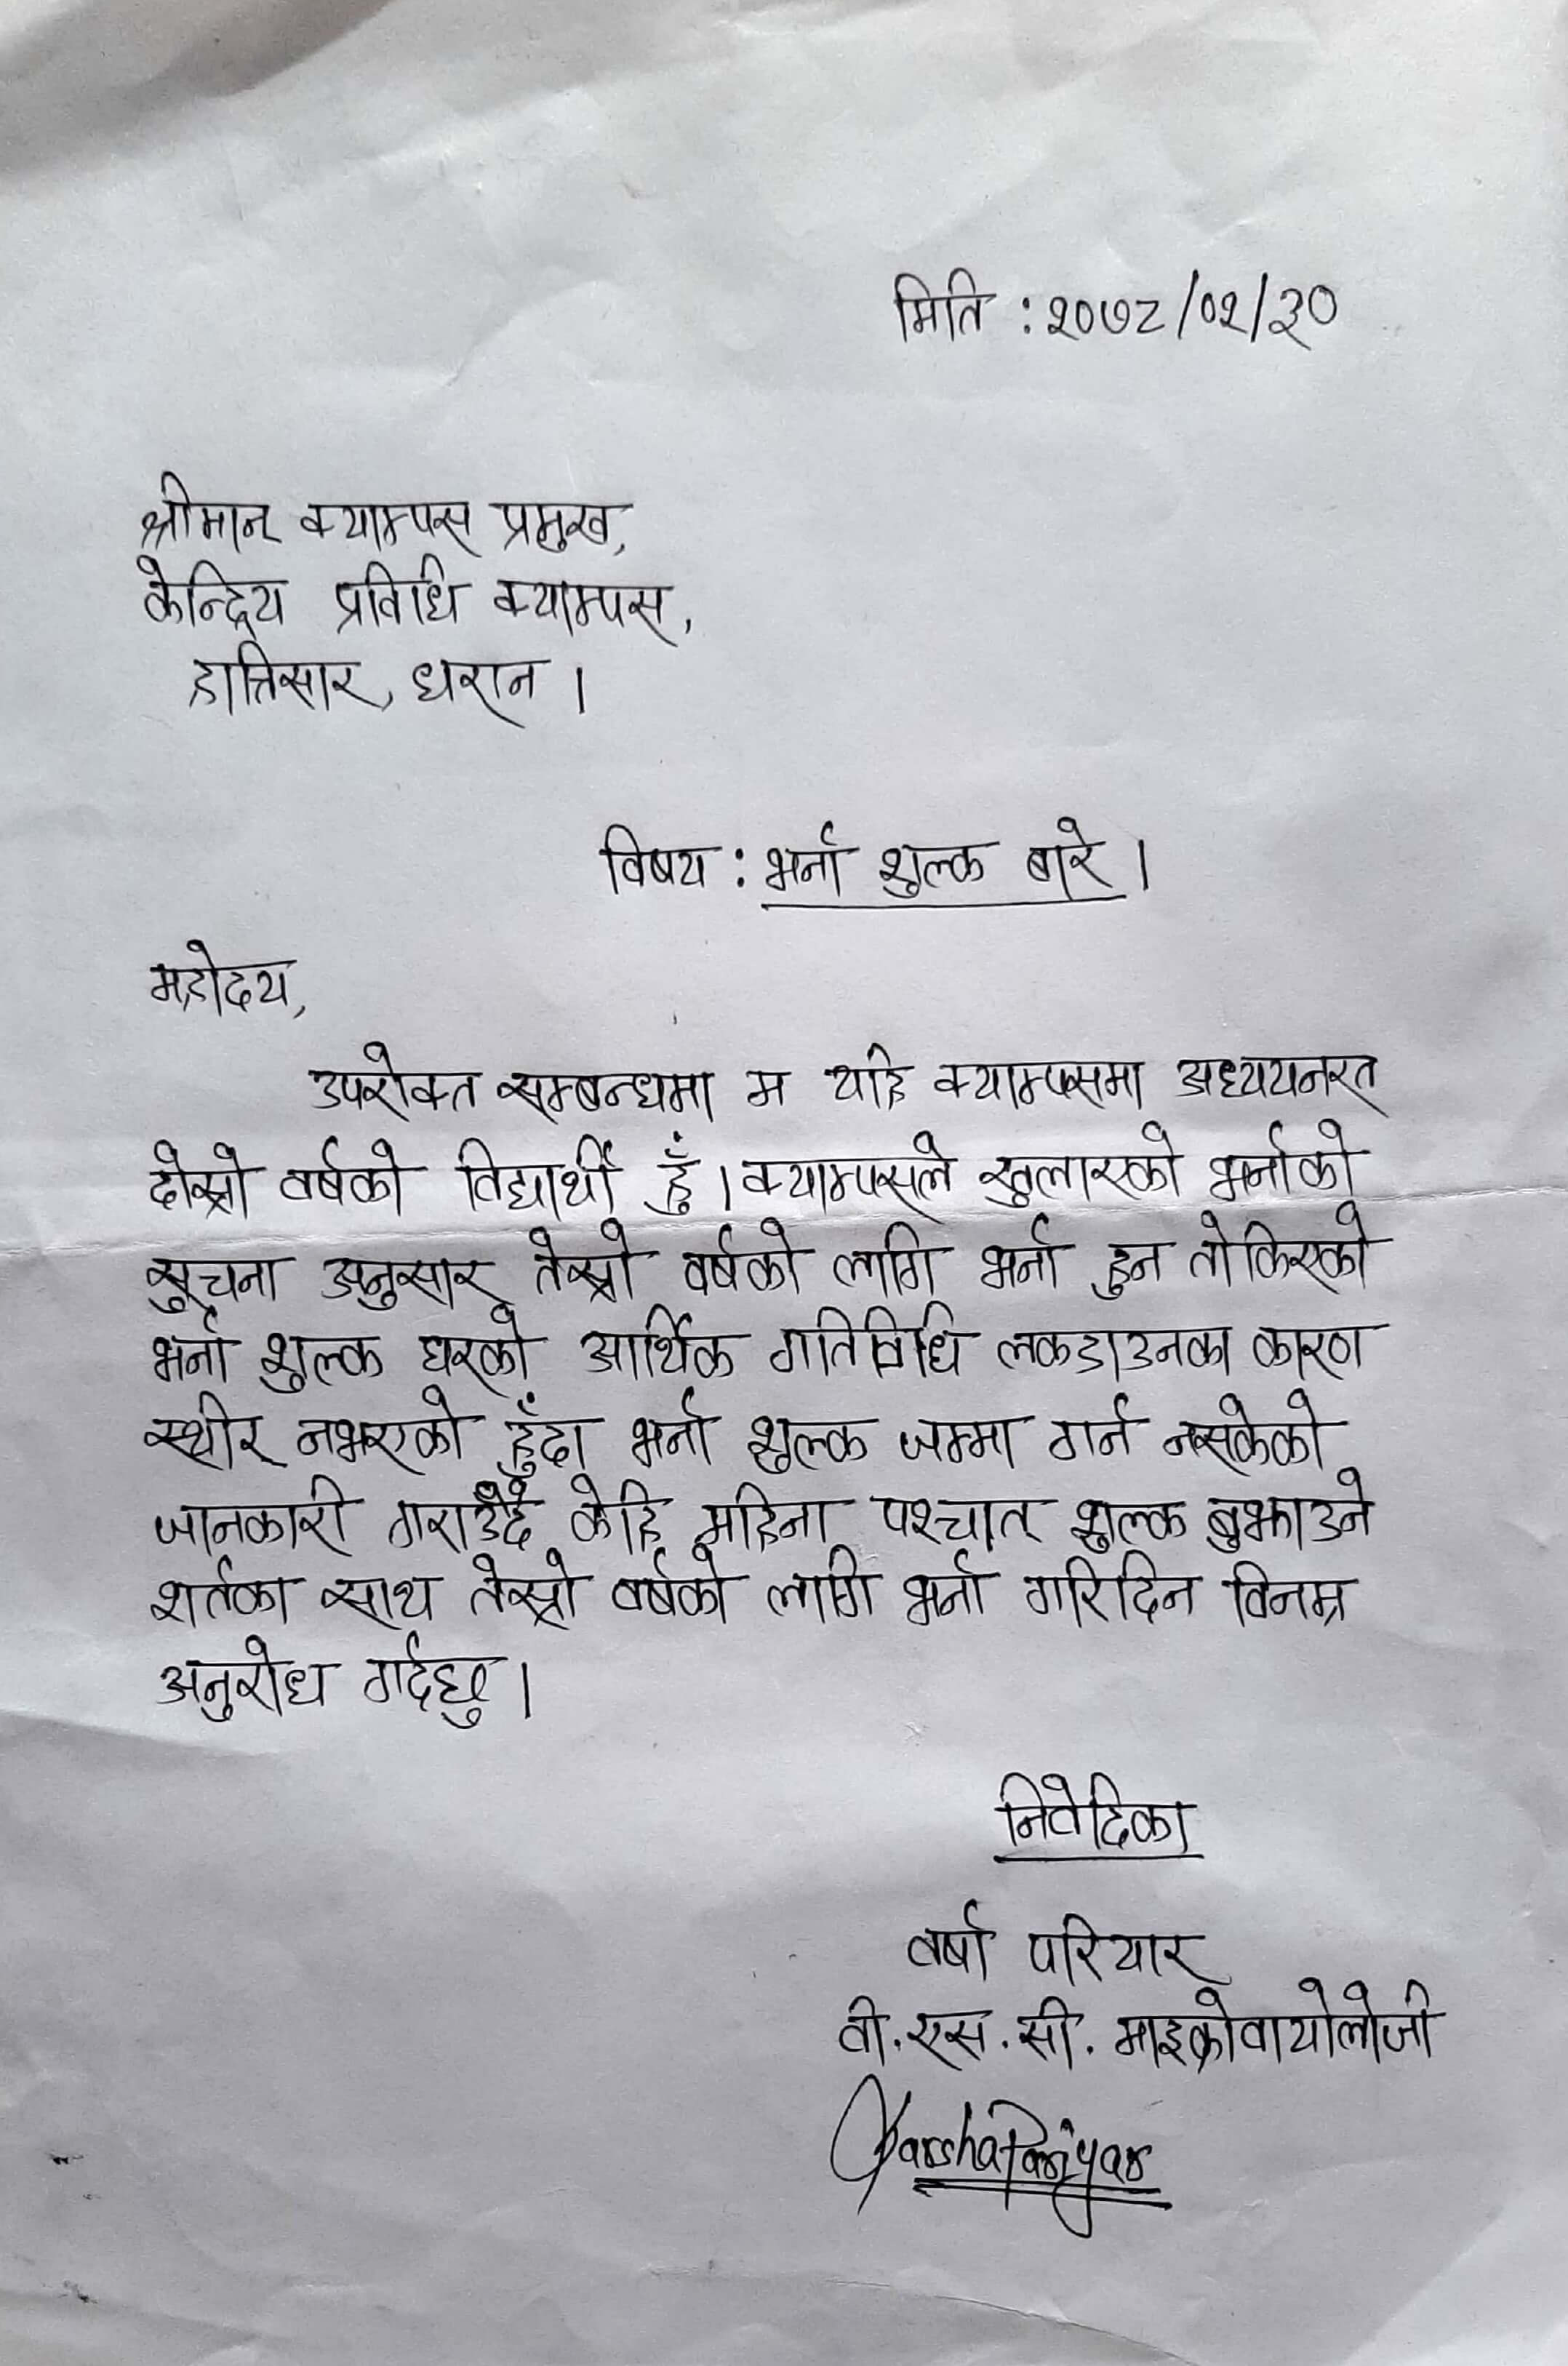 मिति : २०७८/०२/३०
श्रीमान् क्याम्पस प्रमुख,
केन्द्रिय प्रविधि क्याम्पस,
हात्तिसार, धरान ।
विषय : भर्ना शुल्क बारे ।
महोदय,
उपरोक्त सम्बन्धमा म यहि क्याम्पसमा अध्ययनरत
दोस्रो वर्षको विद्यार्थी हुँ । क्याम्पसले खुलाएको भर्नाको
सुचना अनुसार तेस्रो वर्षको लागि भर्ना हुन तोकिएको
भर्ना शुल्क घरको आर्थिक गतिविधि लकडाउनका कारण
स्थीर नभएको हुँदा भर्ना शुल्क जम्मा गर्न नसकेको
जानकारी गराउँदै केहि महिना पश्चात् शुल्क बुझाउने
शर्तका साथ तेस्रो वर्षको लागि भर्ना गरिदिन विनम्र
अनुरोध गर्दछु ।
निवेदिका
वर्षा परियार
वी. एस. सी. माइक्रोवायोलोजी
Varsha Pariyar